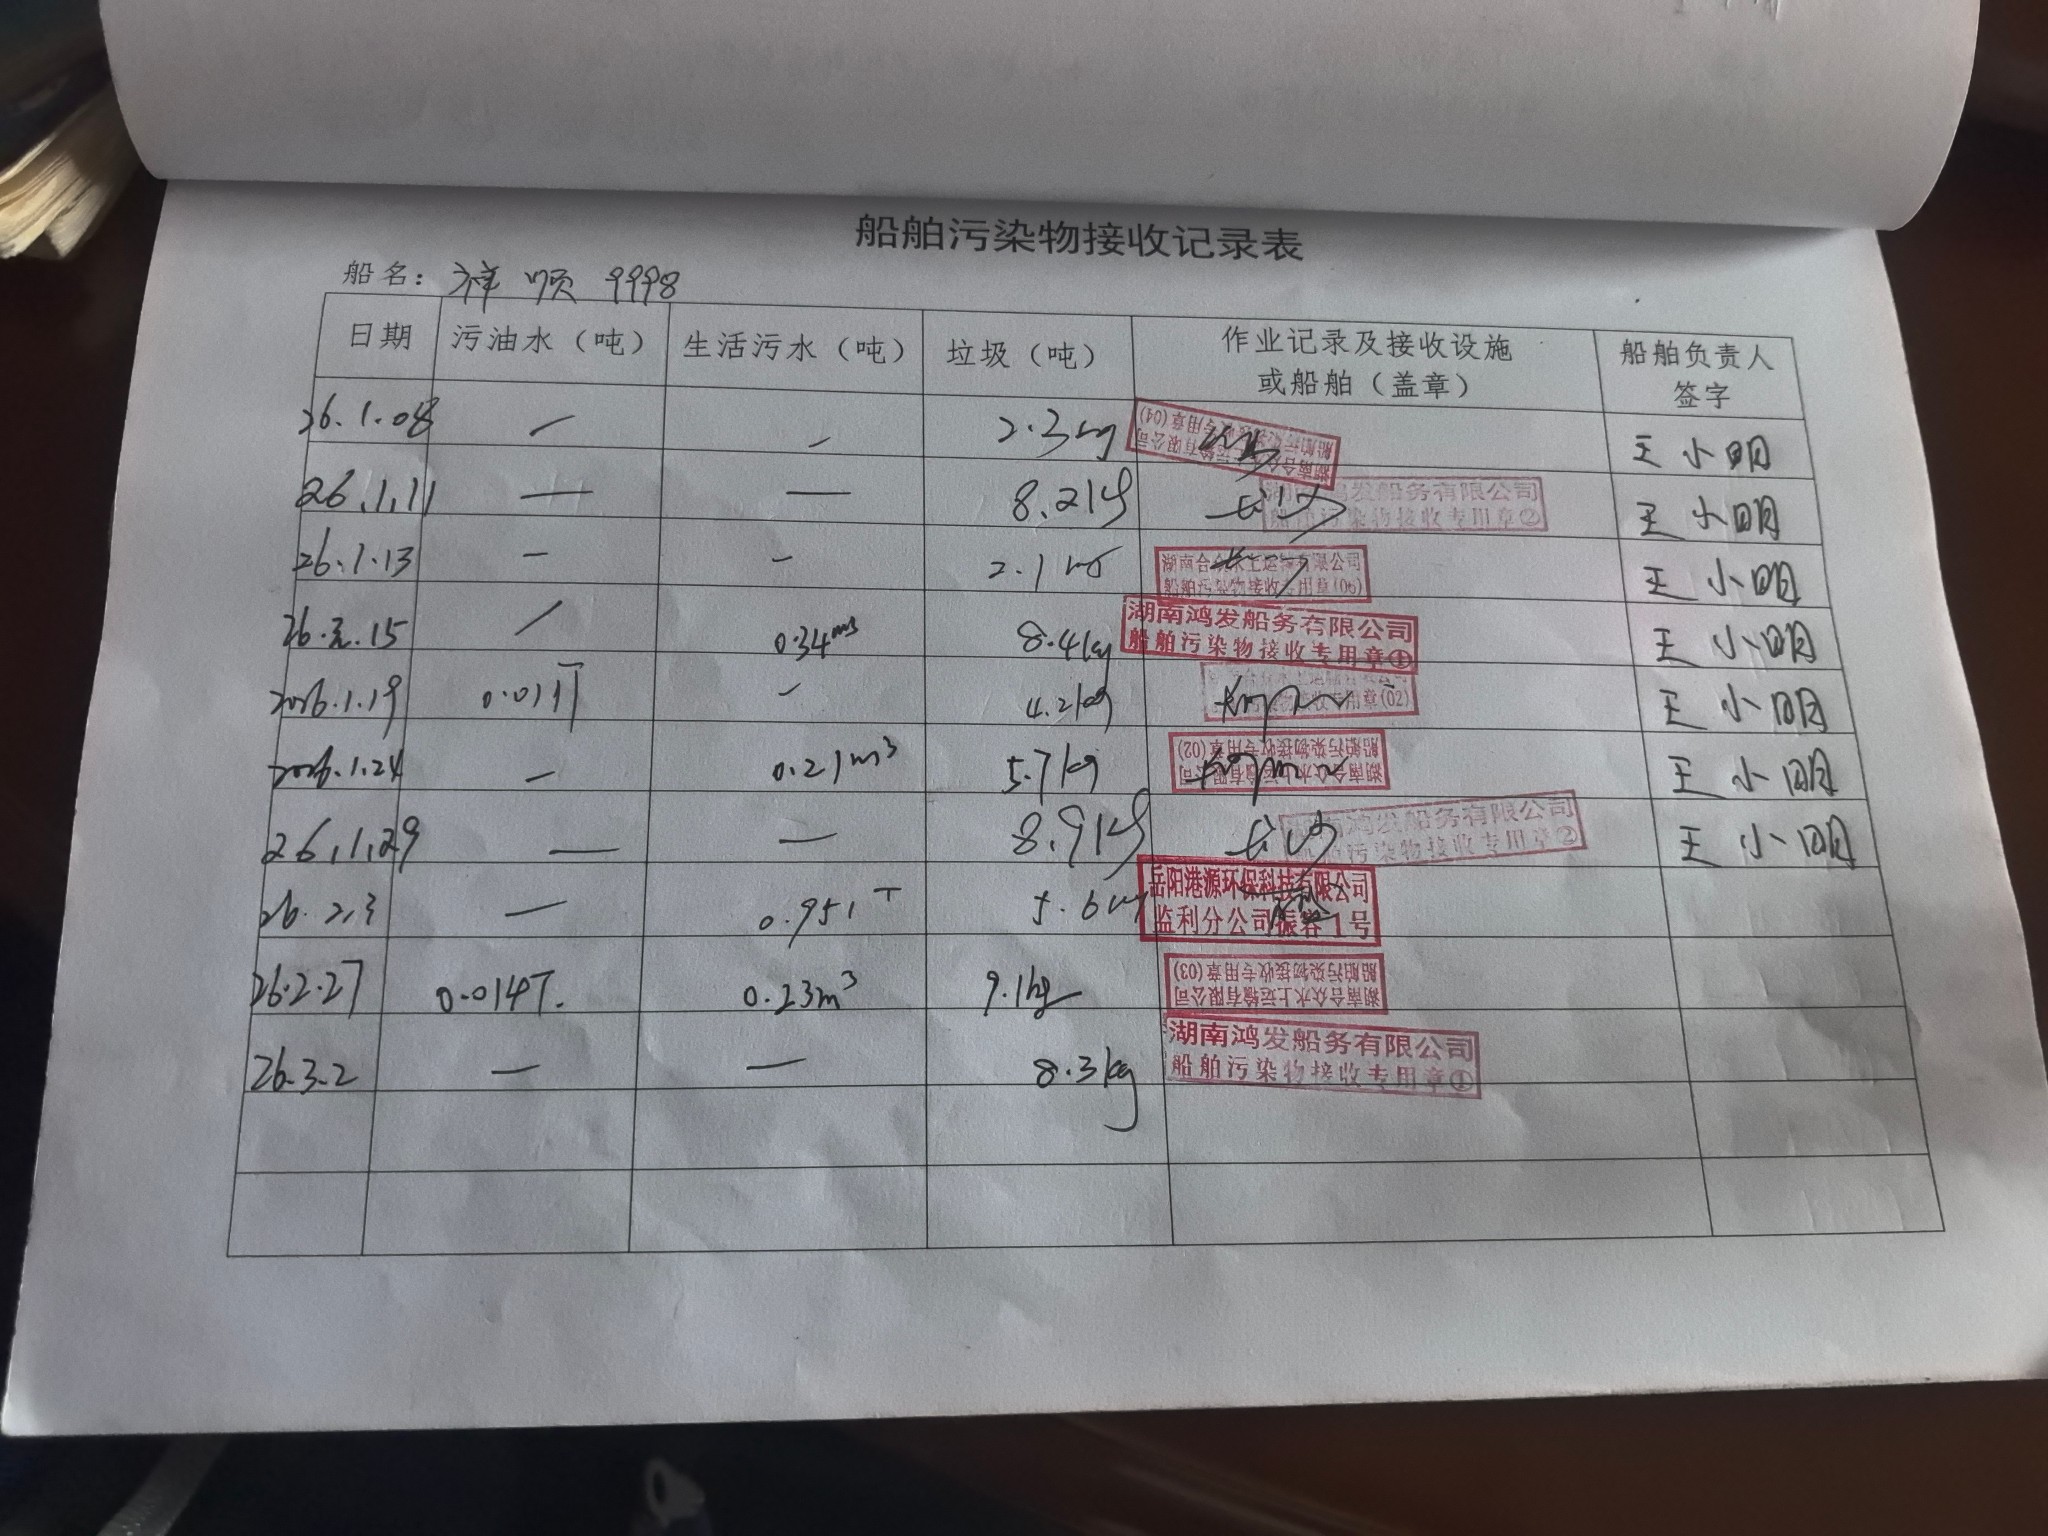 船舶污染物接收记录表
船名：祥顺 9998
日期 污油水（吨） 生活污水（吨） 垃圾（吨） 作业记录及接收设施或船舶（盖章） 船舶负责人签字
26.1.08 — — 2.3kg 湖南合众水上运输有限公司 船舶污染物接收专用章(04) 王小明
26.1.11 — — 8.2kg 长沙 湖南鸿发船务有限公司 船舶污染物接收专用章② 王小明
26.1.13 — — 2.1kg 湖南合众水上运输有限公司 船舶污染物接收专用章(06) 王小明
26.元.15 — 0.34m³ 8.4kg 湖南鸿发船务有限公司 船舶污染物接收专用章① 王小明
2026.1.19 — 4.2kg 接收专用章(02) 王小明
2026.1.24 — 0.21m³ 5.7kg 湖南合众水上运输有限公司 船舶污染物接收专用章(02) 王小明
26.1.29 — — 8.9kg 长沙 湖南鸿发船务有限公司 船舶污染物接收专用章② 王小明
26.2.3 — 0.951T 5.6kg 岳阳港源环保科技有限公司 监利分公司振容1号
26.2.27 0.014T. 0.23m³ 9.1kg 湖南合众水上运输有限公司 船舶污染物接收专用章(03)
26.3.2 — — 8.3kg 湖南鸿发船务有限公司 船舶污染物接收专用章①